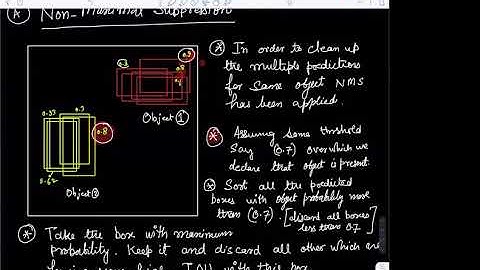 (A) Non-Maximal Suppression
(*) In order to clean up
the multiple predictions
for same object NMS
has been applied.
0.3
0.8
Object (1)
0.7
0.8
Object (2)
(*) Assuming some thrshold
say (0.7) over which we
declare that object is present.
(*) Sort all the predicted
boxes with object probability more
than (0.7). [discard all boxes
less than 0.7]
(*) Take the box with maximum
probability. Keep it and discard all other which are
IOU with this box